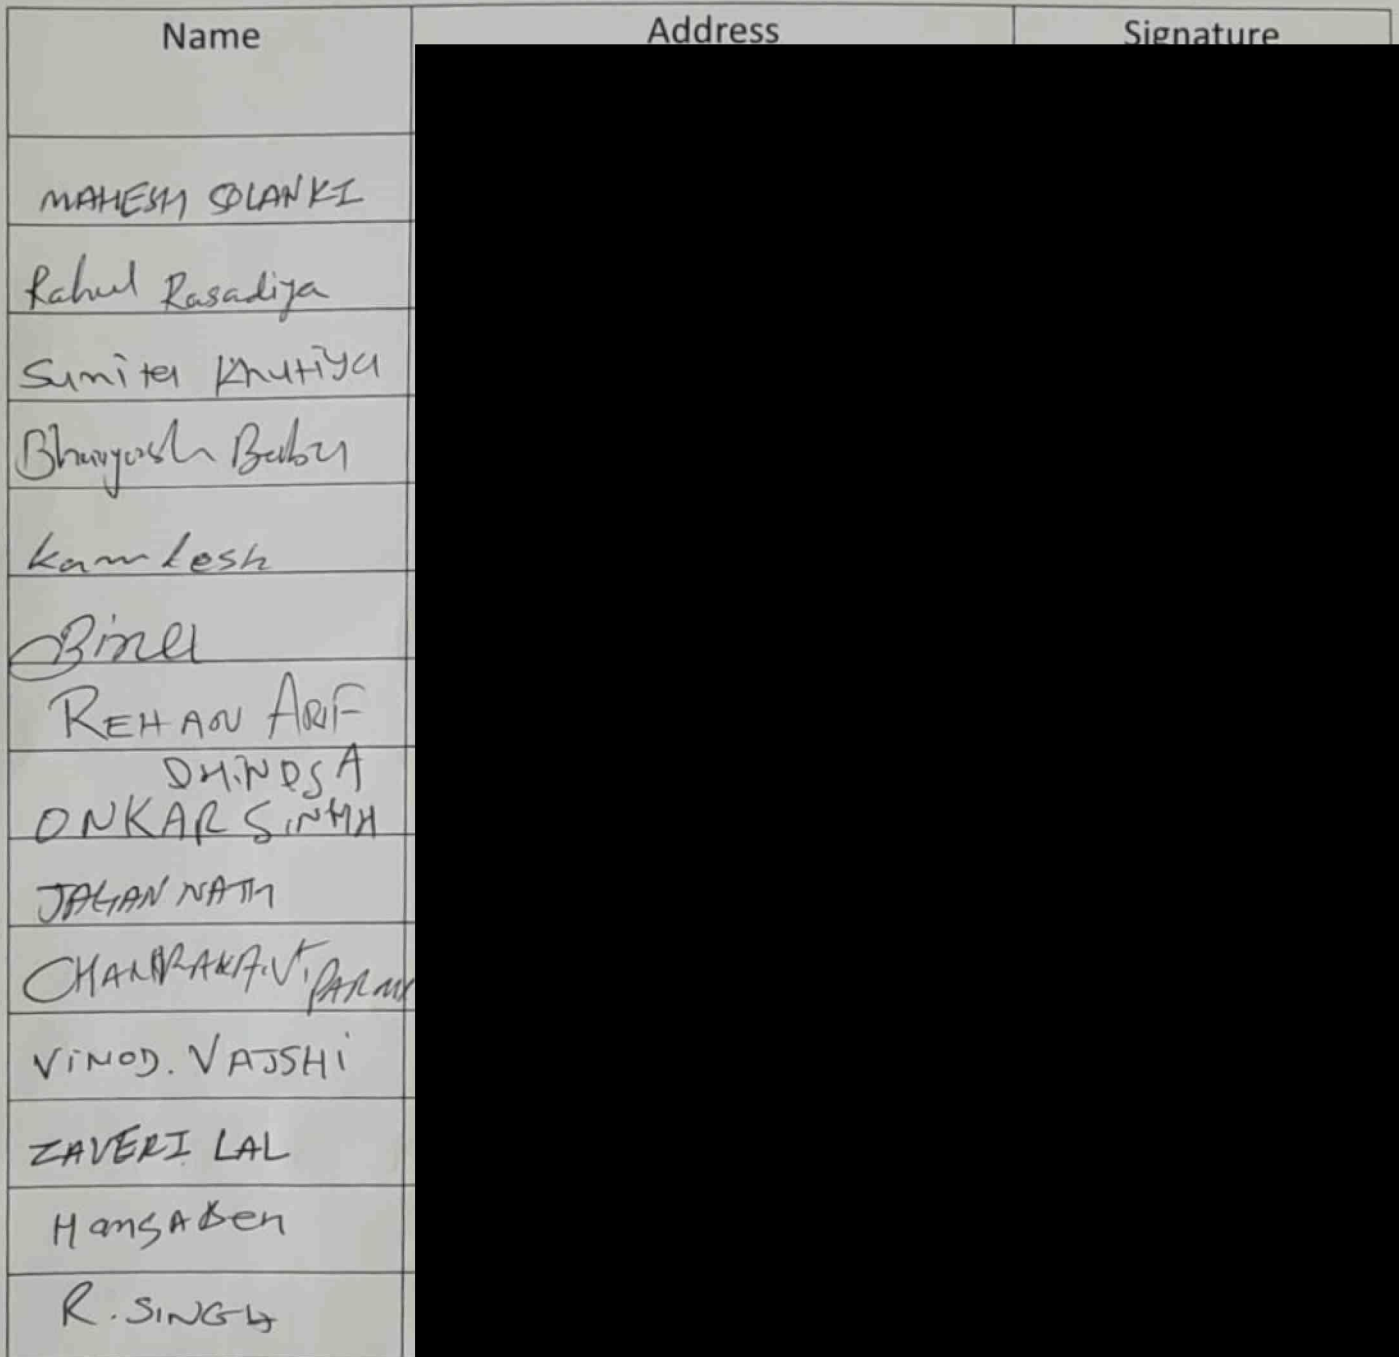 Name Address Signature
MAHESH SOLANKI
Rahul Rasadiya
Sumita Khutiya
Babu
Kamlesh
REHAN ARIF
DHINDSA
ONKAR SINGH
JAGAN NATH
CHANDRAKA.V. PARMA
VINOD. VAJSHI
ZAVERI LAL
HansABen
R. SINGH